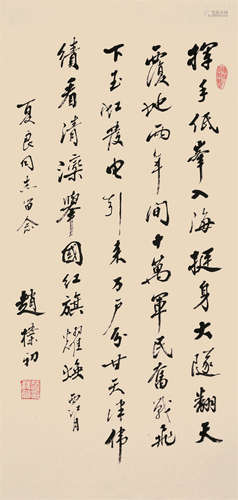 揮手低峯入海挺身大隧翻天
覆地兩年間十萬軍民奮戰飛
下玉泓發電引來万戶分甘天津偉
績看清灤舉國紅旗耀煥 西江月
夏良同志留念
趙樸初